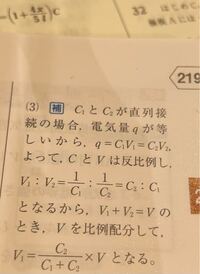 =(1+4x/5l)C
32 はじめに,
219
(3) 補 C₁とC₂が直列接
続の場合,電気量qが等
しいから,q=C₁V₁=C₂V₂,
よって,CとVは反比例し,
V₁:V₂=1/C₁:1/C₂=C₂:C₁
となるから,V₁+V₂=Vの
とき,Vを比例配分して,
V₁=C₂/(C₁+C₂)×Vとなる。